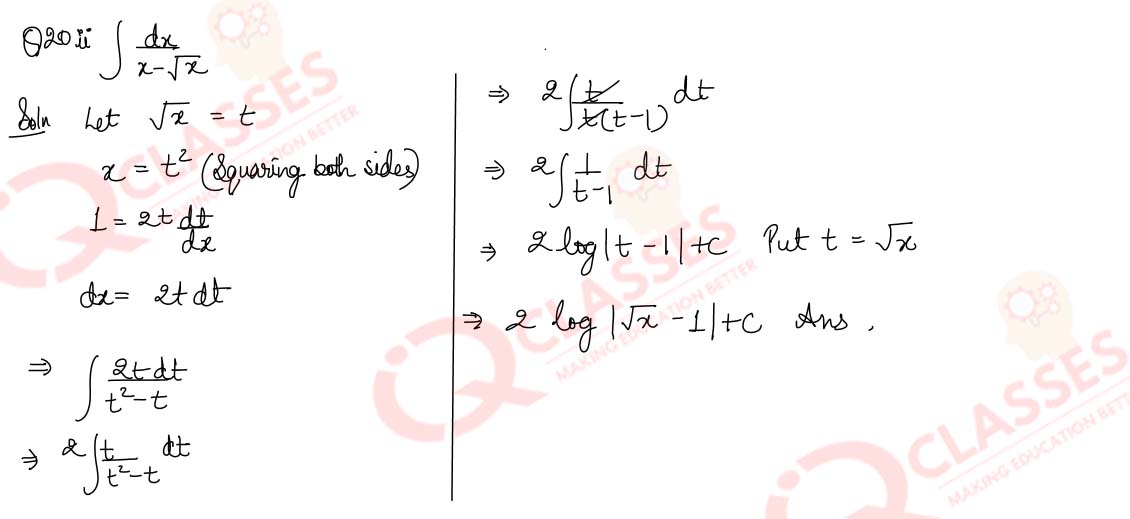 Q20 ii ∫ dx/(x-√x)
Soln Let √x = t
x = t² (Squaring both sides)
1 = 2t dt/dx
dx = 2t dt
⇒ ∫ 2t dt/(t²-t)
⇒ 2∫ t/(t²-t) dt
⇒ 2∫ t/(t(t-1)) dt
⇒ 2∫ 1/(t-1) dt
⇒ 2 log|t-1|+C Put t = √x
⇒ 2 log|√x-1|+C Ans.
IQ CLASSES
MAKING EDUCATION BETTER
IQ CLASSES
MAKING EDUCATION BETTER
IQ CLASSES
MAKING EDUCATION BETTER